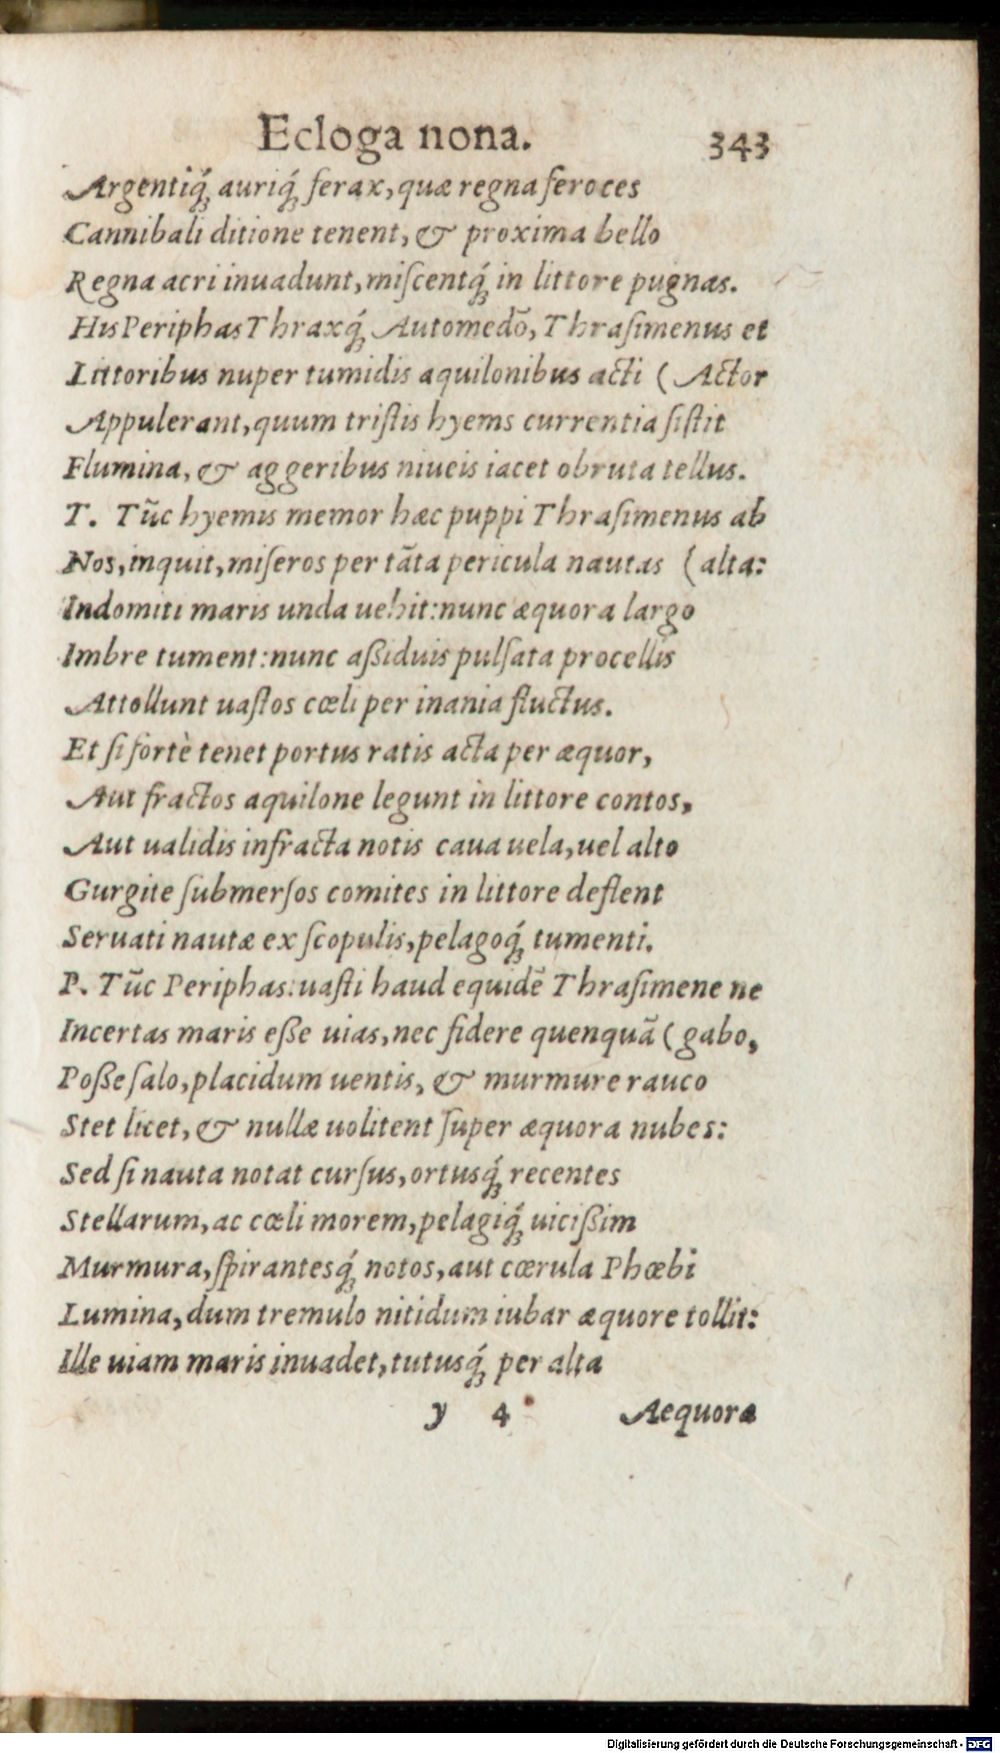 Ecloga nona. 343
Argentiq́ꝫ auriq́ꝫ ferax, quæ regna feroces
Cannibali ditione tenent, & proxima bello
Regna acri inuadunt, miſcentq́ꝫ in littore pugnas.
His Periphas Thraxq́ꝫ Automedō, Thraſimenus et
Littoribus nuper tumidis aquilonibus acti (Actor
Appulerant, quum triſtis hyems currentia ſiſtit
Flumina, & aggeribus niueis iacet obruta tellus.
T. Tūc hyemis memor hæc puppi Thraſimenus ab
Nos, inquit, miſeros per tāta pericula nautas (alta:
Indomiti maris unda uehit: nunc æquora largo
Imbre tument: nunc aßiduis pulſata procellis
Attollunt uaſtos cœli per inania fluctus.
Et ſi fortè tenet portus ratis acta per æquor,
Aut fractos aquilone legunt in littore contos,
Aut ualidis infracta notis caua uela, uel alto
Gurgite ſubmerſos comites in littore deflent
Seruati nautæ ex ſcopulis, pelagoq́ꝫ tumenti.
P. Tūc Periphas: uaſti haud equidē Thraſimene ne
Incertas maris eße uias, nec fidere quenquā (gabo,
Poße ſalo, placidum uentis, & murmure rauco
Stet licet, & nullæ uolitent ſuper æquora nubes:
Sed ſi nauta notat curſus, ortusq́ꝫ recentes
Stellarum, ac cœli morem, pelagiq́ꝫ uicißim
Murmura, ſpirantesq́ꝫ notos, aut cœrula Phœbi
Lumina, dum tremulo nitidum iubar æquore tollit:
Ille uiam maris inuadet, tutusq́ꝫ per alta
y 4 Aequora
Digitalisierung gefördert durch die Deutsche Forschungsgemeinschaft - DFG